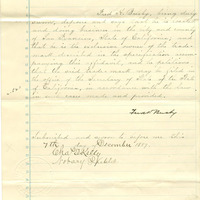 Fred H. Busby, being duly
sworn, deposes and says that he is a resident
and doing business in the city and county
of San Francisco, State of California, and
that he is the exclusive owner of the trade
mark described in the specification
preceding this affidavit, and in
that the said trademark may be filed in
the office of the Secretary of State of the State
of California, in accordance with the law
in such case made and provided.
Fred H Busby
Subscribed and sworn to before me this
7th day December 1887
Chas. Kelly
Notary Public